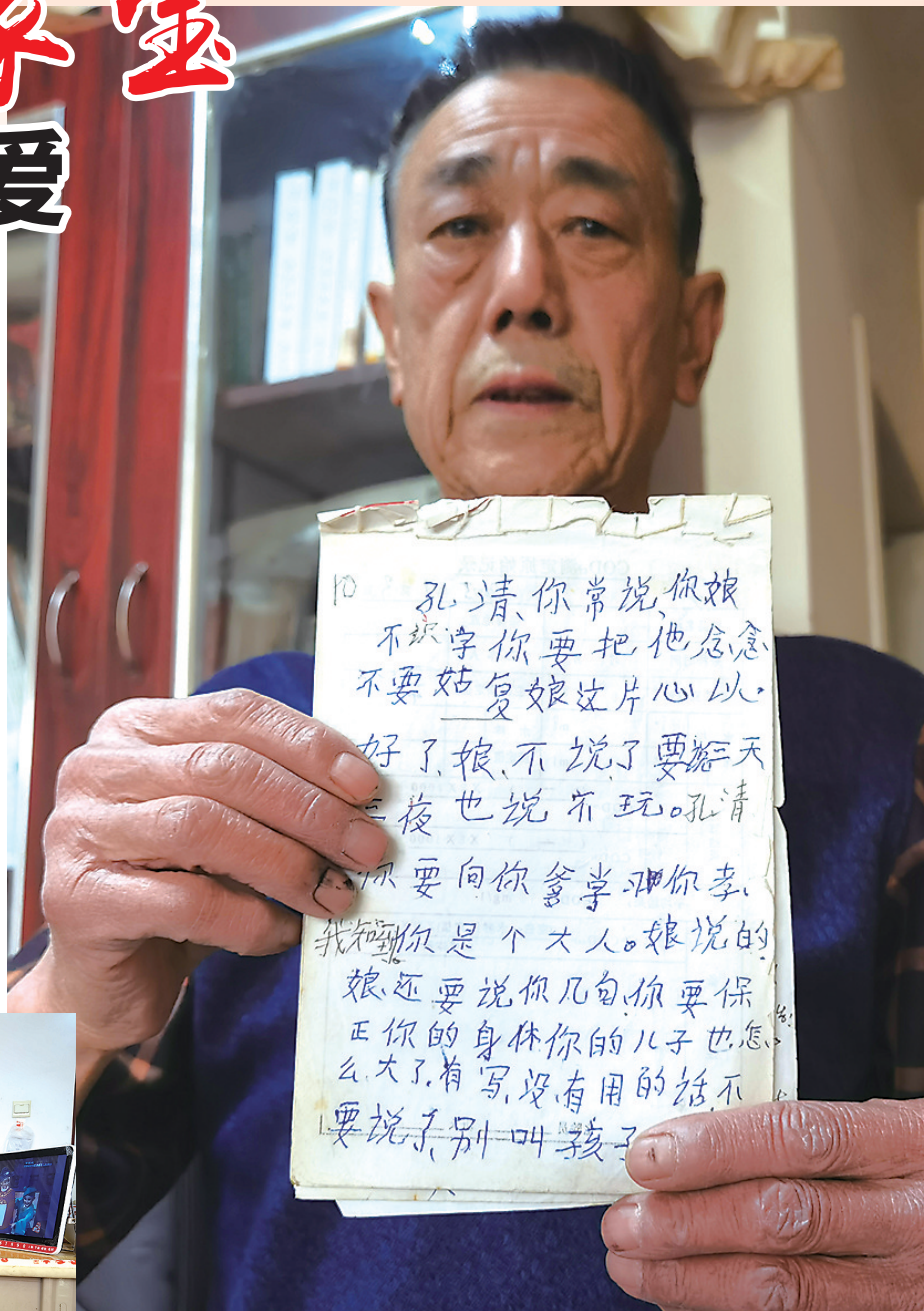 家宝
爱
10
孔清、你常说、你娘
不识字你要把他念念
不要姑复娘这片心以.
好了、娘、不说了要说三天
三夜也说不玩。孔清
你要向你爹学习你孝、
我知到你是个大人。娘说的
娘、还要说你几句、你要保
正你的身体你的儿子也、怎、
么、大了、有写、没、有用的话不
要说了、别叫孩子